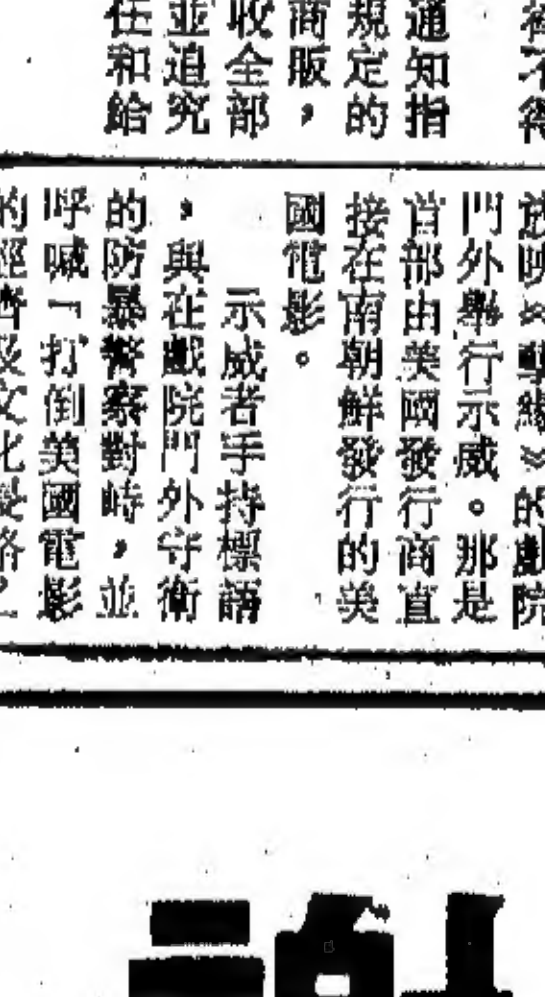 通知指
規定的
商販，
收全部
並追究
任和給
放映《孽緣》的戲院
門外舉行示威。那是
首部由美國發行商直
接在南朝鮮發行的美
國電影。
示威者手持標語
，與在戲院門外守衛
的防暴警察對峙，並
呼喊「打倒美國電影